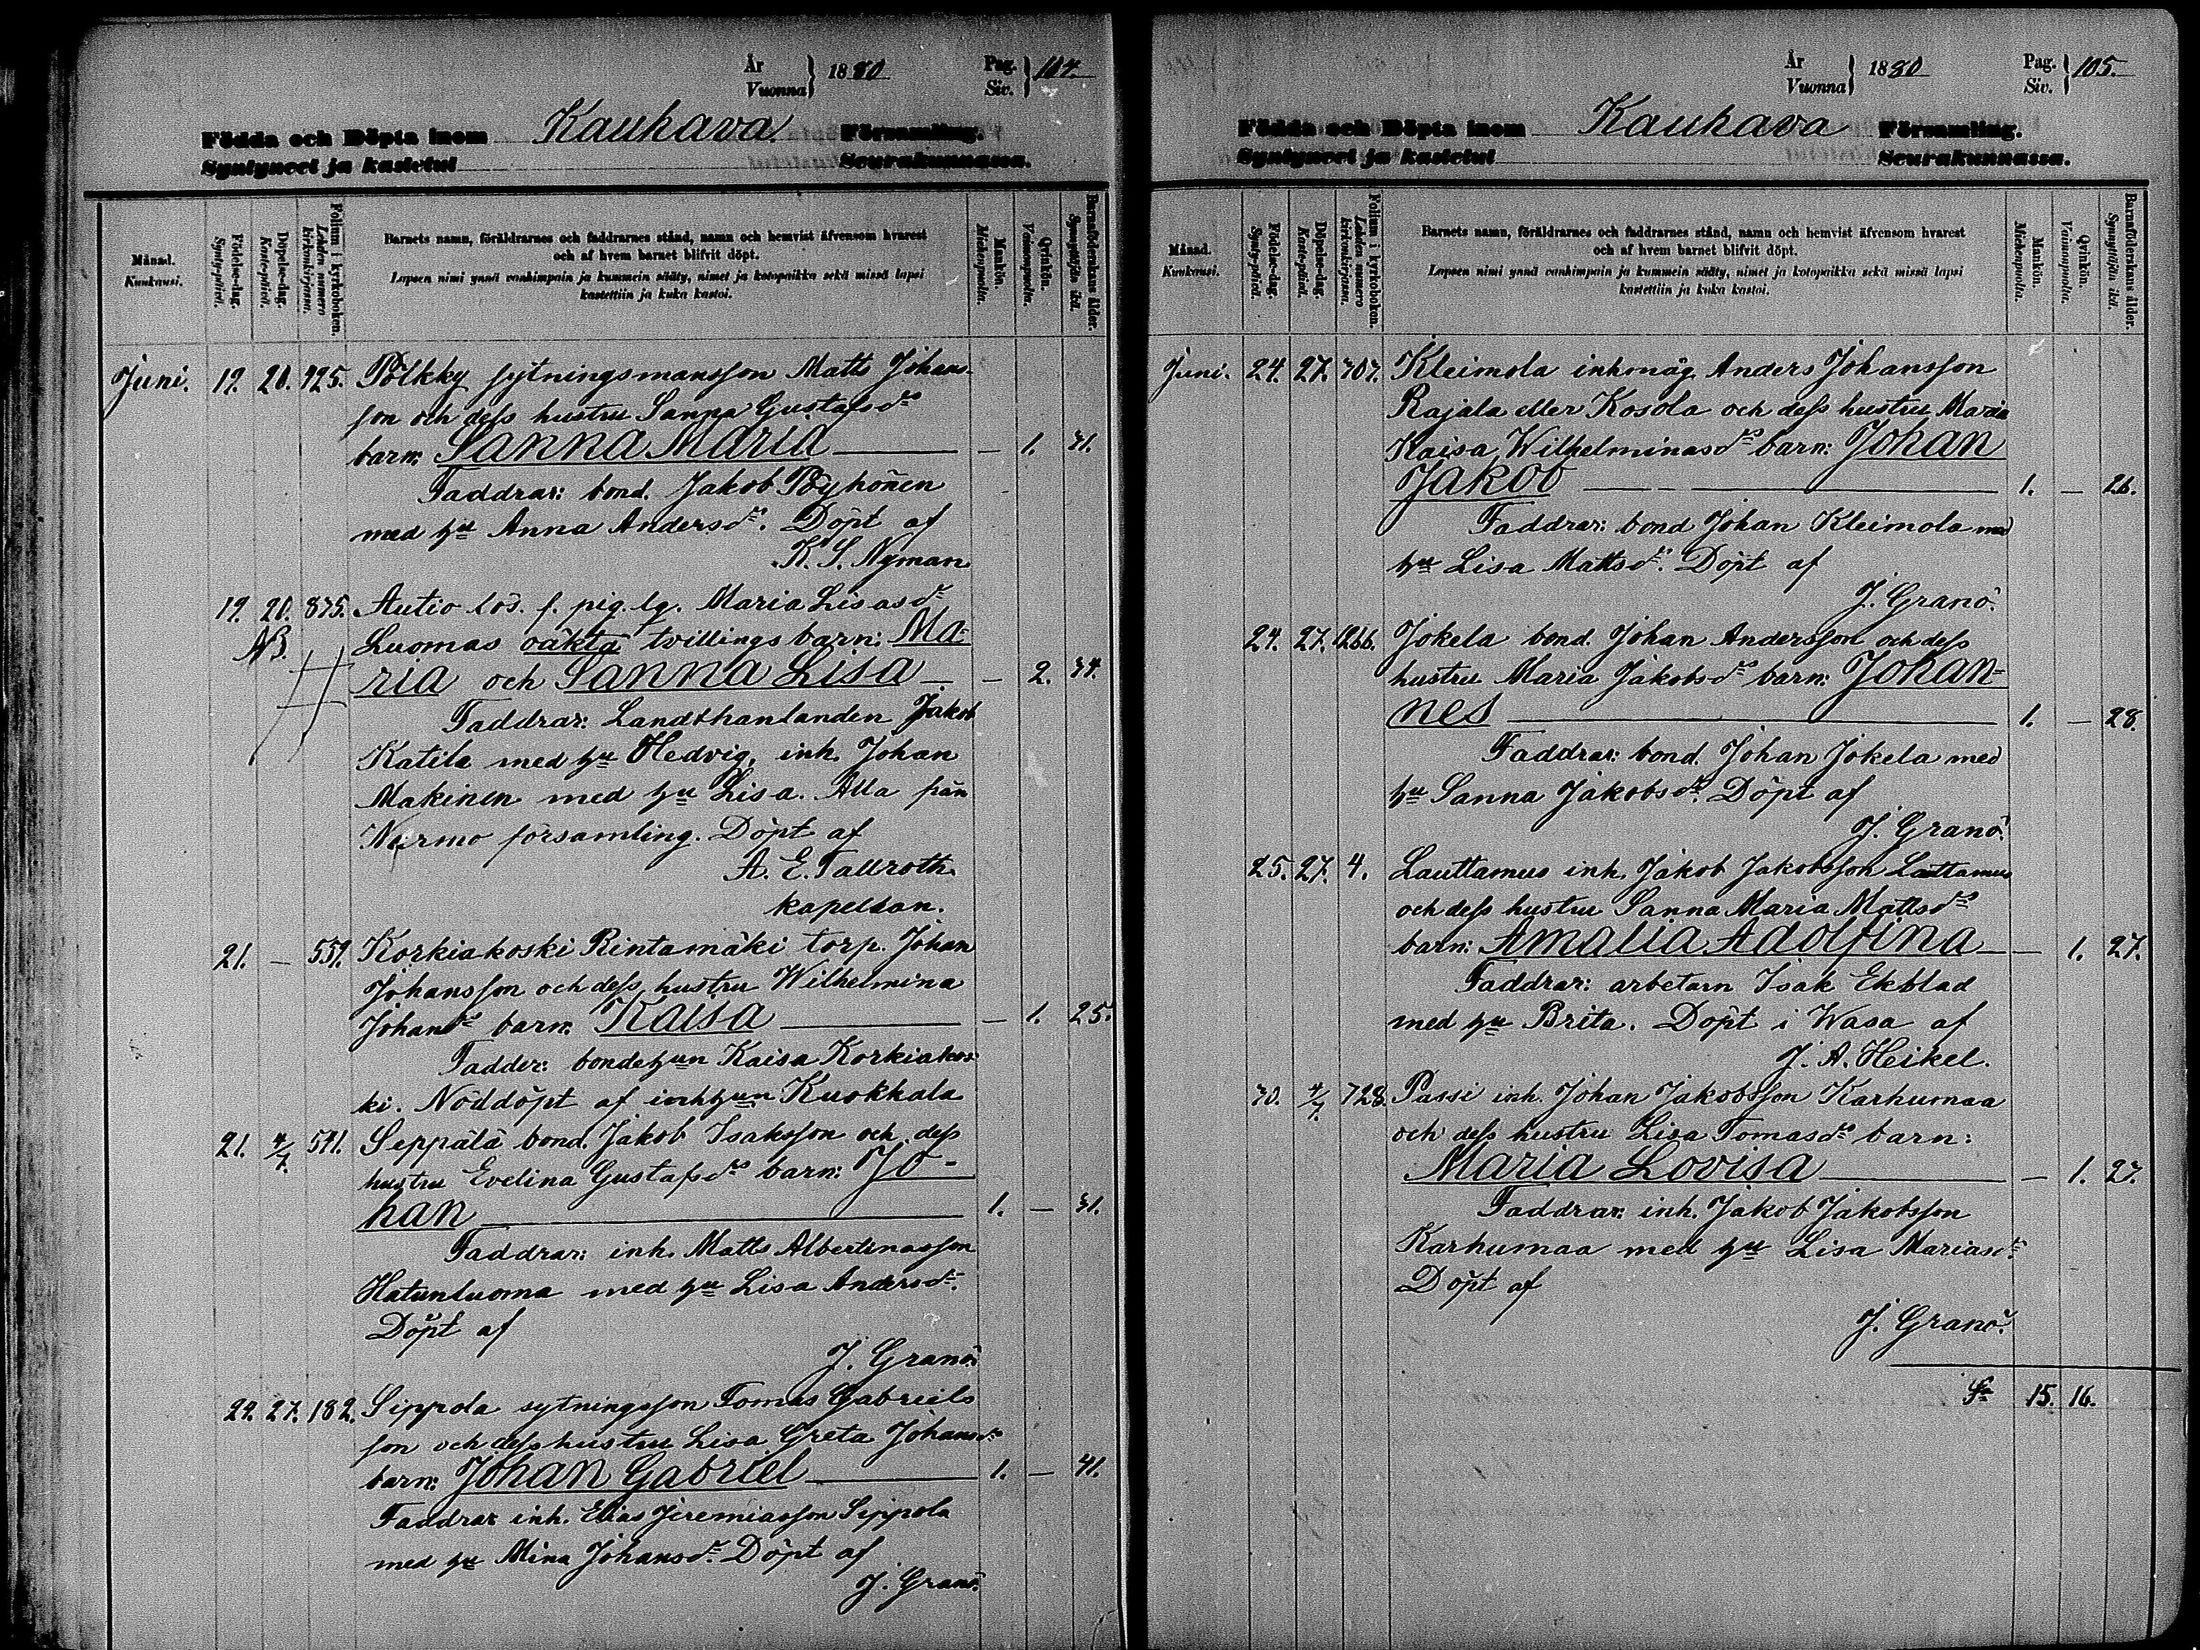 År
Vuonna } 1880 Pag.
Siv. } 104.
Födda och Döpta inom Kauhava Församling.
Syntyneet ja kastetut Seurakunnassa.
Månad.
Kuukausi.
Födelse-dag.
Synty-päivä.
Döpelse-dag.
Kaste-päivä.
Folium i kyrkoboken.
Lehden numero
kirkonkirjassa.
Barnets namn, föräldrarnes och faddrarnes stånd, namn och hemvist äfvensom hvarest
och af hvem barnet blifvit döpt.
Lapsen nimi ynnä vanhimpain ja kummein sääty, nimet ja kotopaikka sekä missä lapsi
kastettiin ja kuka kastoi.
Mankön.
Miehenpuolia.
Qvinkön.
Vaimonpuolia.
Barnaföderskans ålder.
Synnyttäjän ikä.
Juni. 19. 20. 925. Pölkky sytningsmansson Matts Johans-
son och dess hustru Sanna Gustafsdr
barn: Sanna Maria — 1. 31.
Faddrar: bond. Jakob Pöyhönen
med hu Anna Andersdr. Döpt af
K. S. Nyman
19. 20. 875. Autio lös. f. pig. lg. Maria Lisasdr
NB. Luomas oäkta tvillings barn: Ma-
ria och Sanna Lisa — — 2. 34.
Faddrar: Landthanlanden Jakob
Katila med hu Hedvig, inh. Johan
Makinen med hu Lisa. Alla från
Nurmo församling. Döpt af
A. E. Tallroth
kapellan.
21. — 551. Korkiakoski Rintamäki torp. Johan
Johansson och dess hustru Wilhelmina
Johansdr barn: Kaisa — 1. 25.
Fadder: bondehun Kaisa Korkiakos-
ki. Nöddöpt af inhhun Kuokkala
21. 4/7. 541. Seppälä bond. Jakob Isaksson och dess
hustru Evelina Gustafsdr barn: Jo-
han 1. — 31.
Faddrar: inh. Matts Albertinasson
Hatunluoma med hu Lisa Andersdr.
Döpt af
J. Granö.
22. 27. 182. Sippola sytningsson Tomas Gabriels
son och dess hustru Lisa Greta Johansdr
barn: Johan Gabriel 1. — 41.
Faddrar inh. Elias Jeremiasson Sippola
med hu Mina Johansdr. Döpt af
J. Granö.
År
Vuonna } 1880 Pag.
Siv. } 105.
Födda och Döpta inom Kauhava Församling.
Syntyneet ja kastetut Seurakunnassa.
Månad.
Kuukausi.
Födelse-dag.
Synty-päivä.
Döpelse-dag.
Kaste-päivä.
Folium i kyrkoboken.
Lehden numero
kirkonkirjassa.
Barnets namn, föräldrarnes och faddrarnes stånd, namn och hemvist äfvensom hvarest
och af hvem barnet blifvit döpt.
Lapsen nimi ynnä vanhimpain ja kummein sääty, nimet ja kotopaikka sekä missä lapsi
kastettiin ja kuka kastoi.
Mankön.
Miehenpuolia.
Qvinkön.
Vaimonpuolia.
Barnaföderskans ålder.
Synnyttäjän ikä.
Juni. 24. 27. 707. Kleimola inhmåg Anders Johansson
Rajala eller Kosola och dess hustru Maria
Kaisa Wilhelminasdr barn: Johan
Jakob 1. — 26.
Faddrar: bond Johan Kleimola med
hu Lisa Mattsdr. Döpt af
J. Granö.
24. 27. 1266. Jokela bond. Johan Andersson och dess
hustru Maria Jakobsdr barn: Johan-
nes 1. — 28.
Faddrar: bond. Johan Jokela med
hu Sanna Jakobsdr. Döpt af
J. Granö.
25. 27. 4. Lauttamus inh. Jakob Jakobsson Lauttamus
och dess hustru Sanna Maria Mattsdr
barn: Amalia Adolfina — 1. 27.
Faddrar: arbetarn Isak Ekblad
med hu Brita. Döpt i Wasa af
J. A. Heikel.
30. 4/7. 728. Passi inh. Johan Jakobsson Karhumaa
och dess hustru Lisa Tomasdr barn:
Maria Lovisa — 1. 27.
Faddrar: inh. Jakob Jakobsson
Karhumaa med hu Lisa Mariasdr.
Döpt af
J. Granö.
Sa 15. 16.